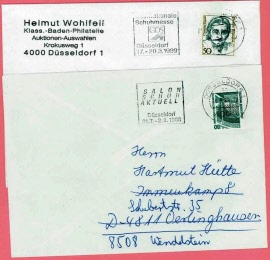 Helmut Wohlfeil
Klass.-Baden-Philatelie
Auktionen-Auswahlen
Krokusweg 1
4000 Düsseldorf 1
Internationale
Schuhmesse
GDS
Düsseldorf
17.-20.3.1989
50
SALON
SCHUH
AKTUELL
Düsseldorf
Herrn
Hartmut Hütte
Immenkamp 8
Schubertstr. 35
D-4811 Oerlinghausen
8508 Wendelstein